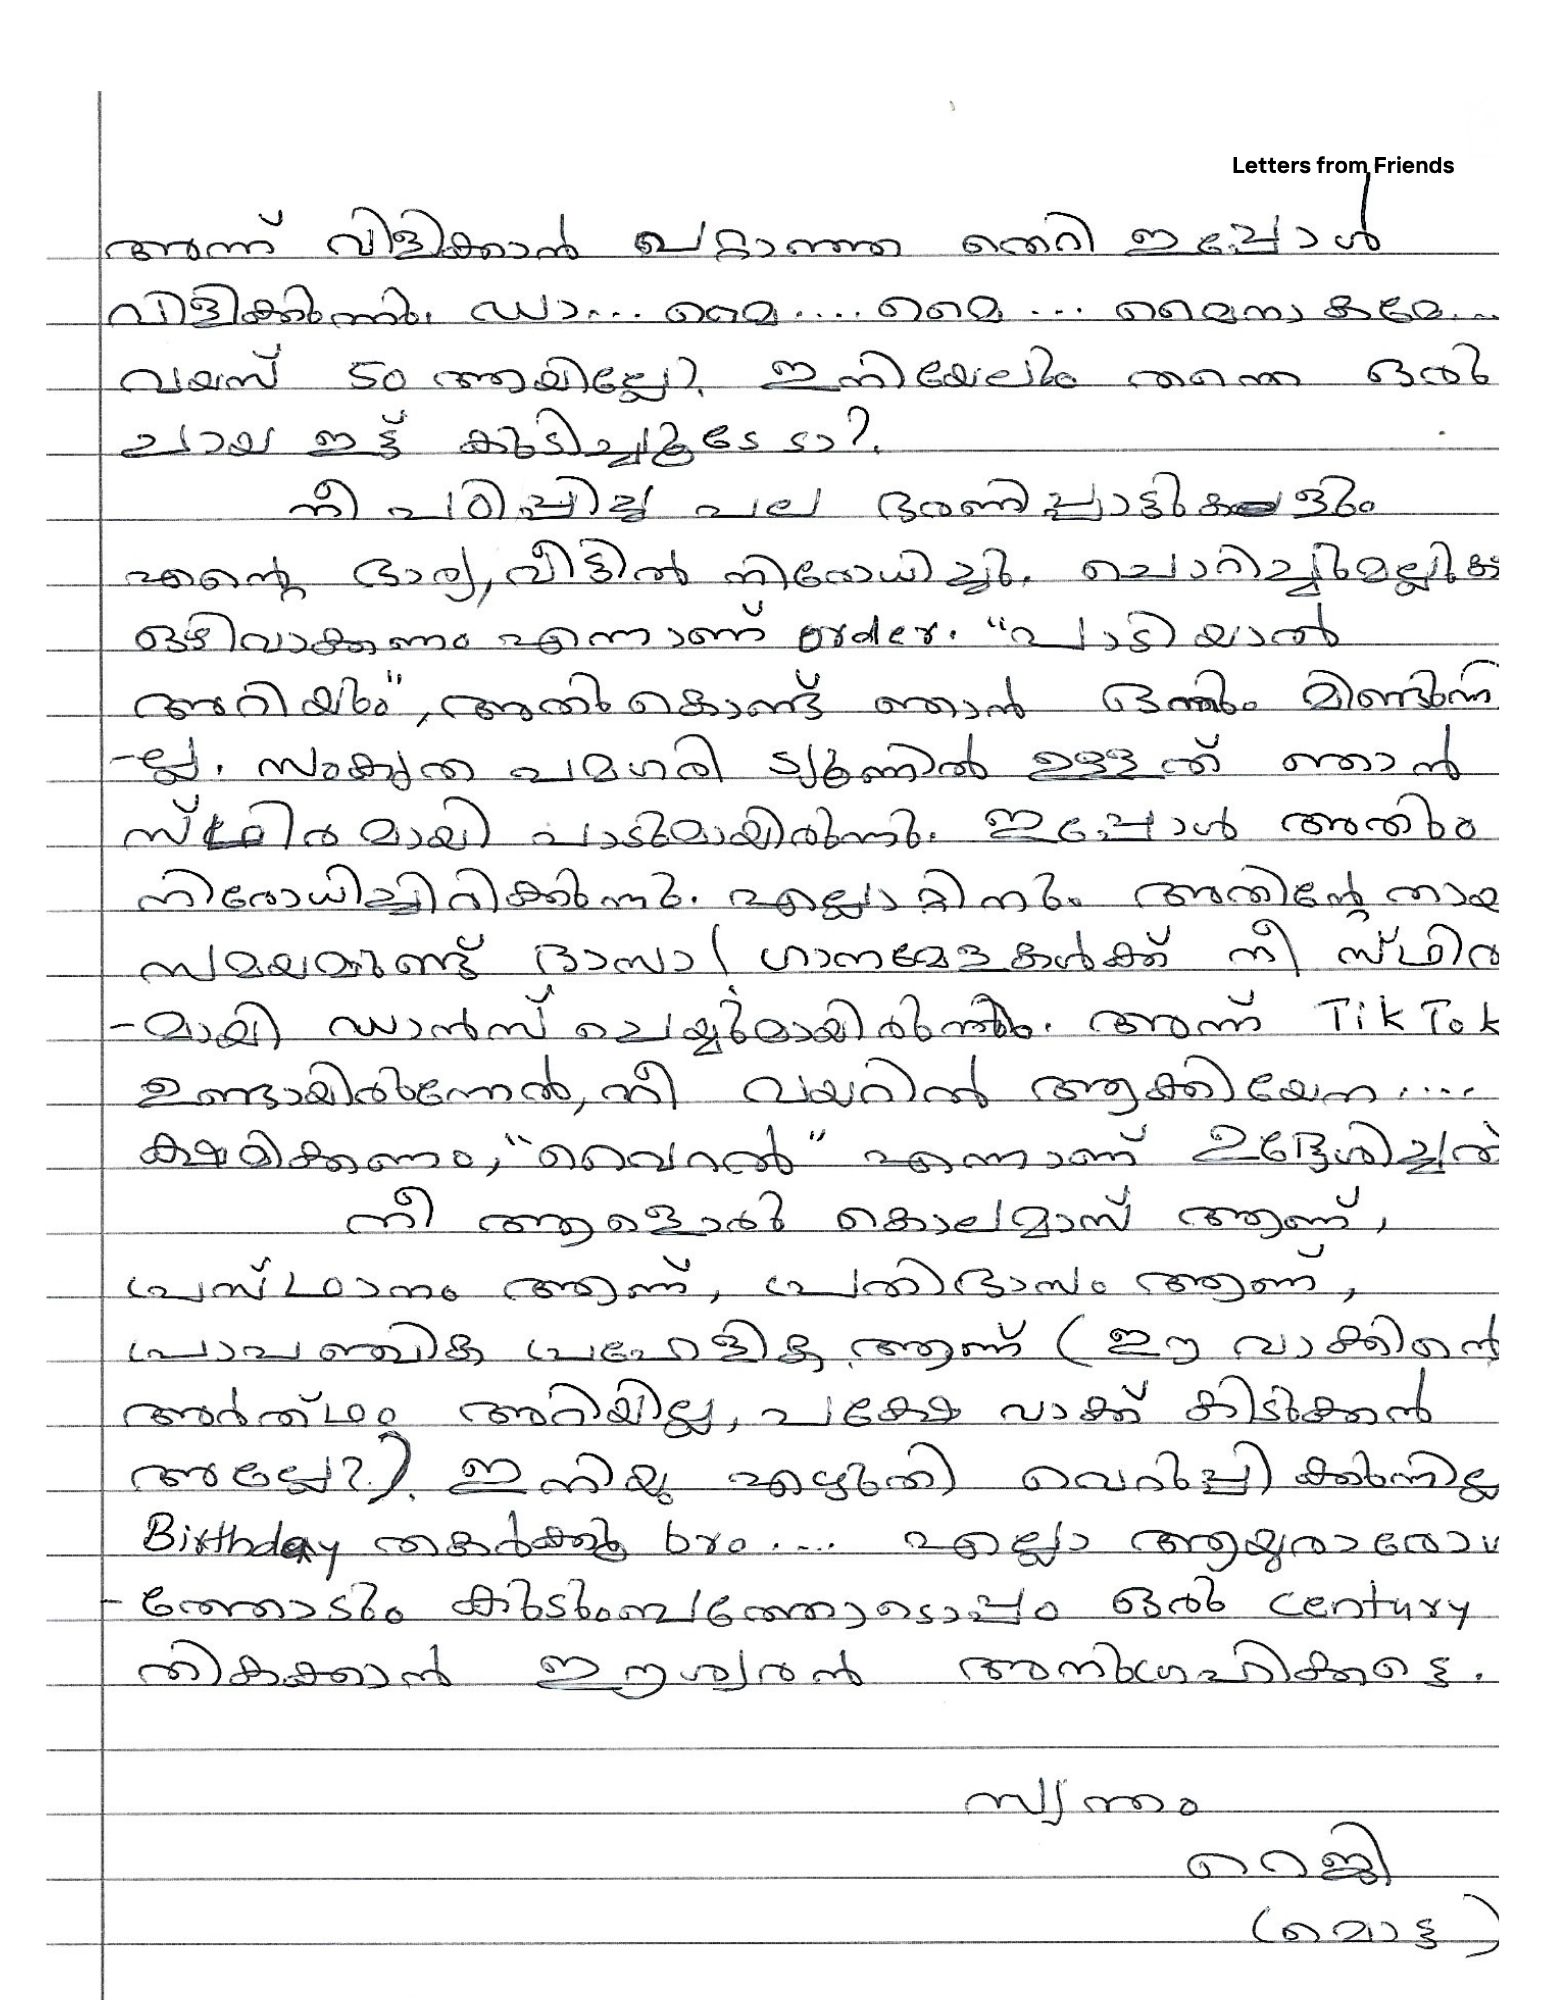 Letters from Friends
അന്ന് വിളിക്കാൻ പറ്റാഞ്ഞ തെറി ഇപ്പോൾ
വിളിക്കുന്നു. ഡാ... മൈ.... മൈ ... മൈനാകമേ...
വയസ് 50 ആയില്ലേ?. ഇനിയേലും തന്നെ ഒരു
ചായ ഇട്ട് കുടിച്ചുകൂടെ ടാ?.
നീ പഠിപ്പിച്ച പല ഭരണിപ്പാട്ടുകളും
എന്റെ ഭാര്യ, വീട്ടിൽ നിരോധിച്ചു. ചൊറിച്ചുമല്ലുക
ഒഴിവാക്കണം എന്നാണ് order. "പാടിയാൽ
അറിയും", അതുകൊണ്ട് ഞാൻ ഒന്നും മിണ്ടുന്നി
-ല്ല. സംകൃത പമഗരി ട്യൂണിൽ ഉള്ളത് ഞാൻ
സ്ഥിരമായി പാടുമായിരുന്നു. ഇപ്പോൾ അതും
നിരോധിച്ചിരിക്കുന്നു. എല്ലാറ്റിനും അതിന്റേതായ
സമയമുണ്ട് ദാസാ! ഗാനമേളകൾക്ക് നീ സ്ഥിര
-മായി ഡാൻസ് ചെയ്യുമായിരുന്നു. അന്ന് TikTok
ഉണ്ടായിരുന്നേൽ, നീ വയറിൽ ആക്കിയേന ....
ക്ഷമിക്കണം, "വൈറൽ" എന്നാണ് ഉദ്ദേശിച്ചത്
നീ ആളൊരു കൊലമാസ് ആണ്,
പ്രസ്ഥാനം ആണ്, പ്രതിഭാസം ആണ്,
പ്രാപഞ്ചിക പ്രഹേളിക ആണ് (ഈ വാക്കിന്റെ
അർത്ഥം അറിയില്ല, പക്ഷേ വാക്ക് കിടുക്കൻ
അല്ലേ?). ഇനിയും എഴുതി വെറുപ്പിക്കുന്നില്ല
Birthday തകർക്കൂ bro .... എല്ലാ ആയുരാരോഗ
-ത്തോടും കുടുംബത്തോടൊപ്പം ഒരു century
തികക്കാൻ ഈശ്വരൻ അനുഗ്രഹിക്കട്ടെ.
സ്വന്തം
റെജി
(മൊട്ട)